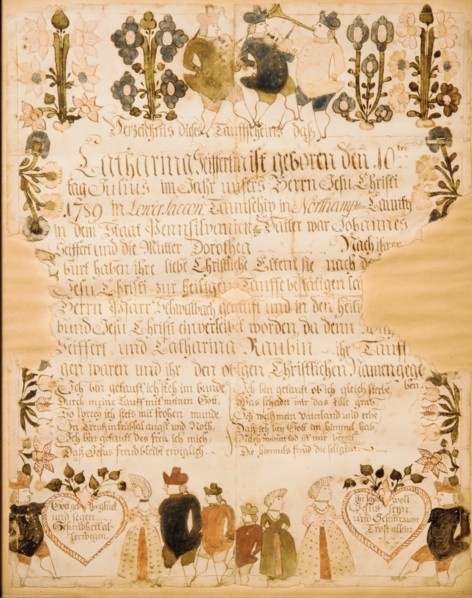 Verzeichnis dieses Taufscheins daß
Catharina Seiffertin ist geboren den 10ten
tag Julius im Jahr unsers Herrn Jesu Christi
1789 in Lower Saccon Taunschip in Northamp. Caunty
in dem Staat Pennsilvanien Vatter war Johannes
Seiffert und die Mutter Dorothea Nach ihrer
burt haben ihre liebe Christliche Eltern sie nach de
Jesu Christi zur heiligen Tauffe be
Herrn Pfarr Schwalbach getauft und in den heilig
bund Jesu Christi einverleibet worden da denn
Seiffert und Catharina Raubin ihr Tauff
gen waren und ihr den obigen Christlichen Namen gege
ben.
Ich bin getauft ich steh im bunde
Durch meine Tauff mit meinen Gott,
So sprech ich stets mit frohen munde
In Creutz in trübsal angst und Noth,
Ich bin getauft des freu ich mich
Daß Jesus freud bleibt ewiglich
Ich bin getauft ob ich gleich sterbe
Was schadet mir das kühle grab
Ich weiß mein Vaterland und erbe
Daß ich bey Gott im himmel hab
Nach meinen tod ist mir bereit
Die himmels freud die seligkeit
Gott geb ihr glück
und segen